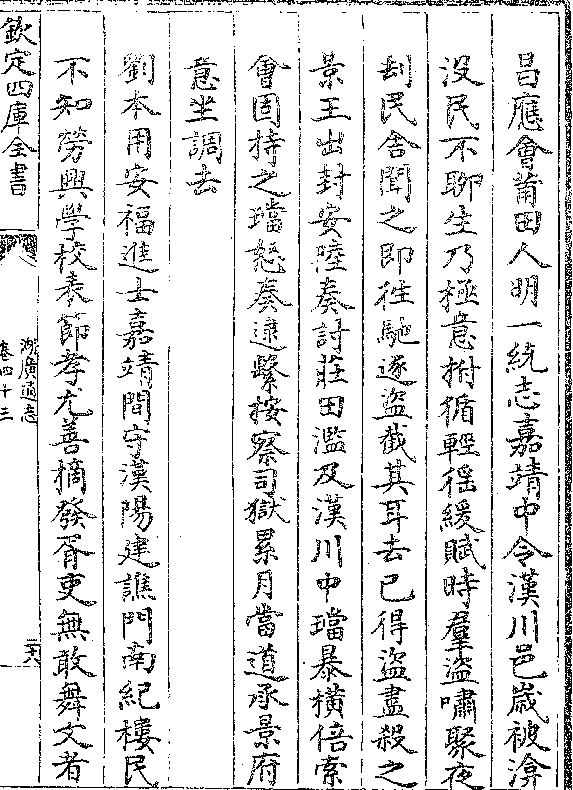 昌應會莆田人明一統志嘉靖中令漢川邑歲被渰
沒民不聊生乃極意拊循輕徭緩賦時羣盜嘯聚夜
刦民舍聞之即徃馳逐盜截其耳去已得盜盡殺之
景王出封安陸奏討莊田濫及漢川中璫暴橫倍索
會固持之璫怒奏逮繫按察司獄累月當道承景府
意坐調去
劉本用安福進士嘉靖間守漢陽建譙門南紀樓民
不知勞興學校表節孝尤善摘發胥吏無敢舞文者
欽定四庫全書
湖廣通志
卷四十三
二十八